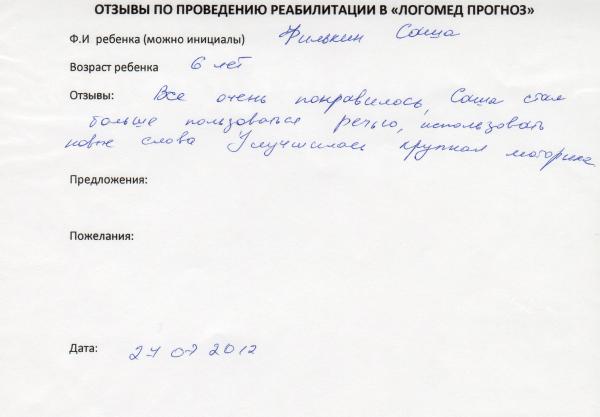 ОТЗЫВЫ ПО ПРОВЕДЕНИЮ РЕАБИЛИТАЦИИ В «ЛОГОМЕД ПРОГНОЗ»
Ф.И ребенка (можно инициалы) Филькин Саша
Возраст ребенка 6 лет
Отзывы: Все очень понравилось, Саша стал
больше пользоваться речью, использовать
новые слова Улучшилась крупная моторика
Предложения:
Пожелания:
Дата: 27 07 2012